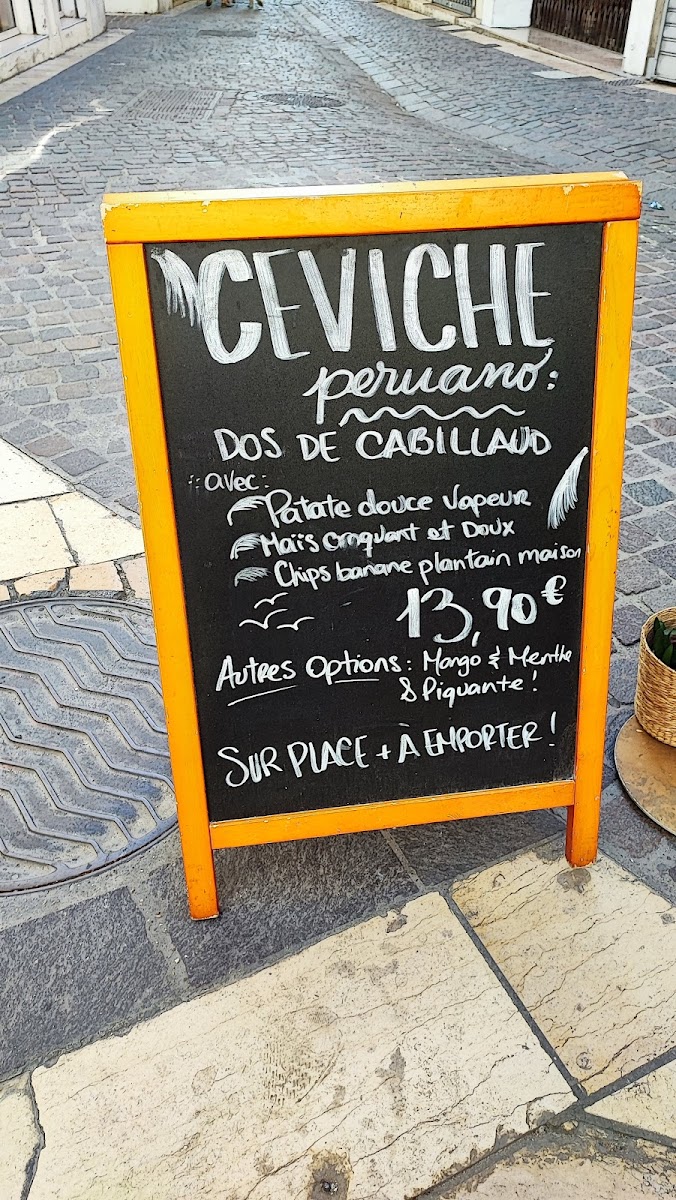 CEVICHE
peruano:
DOS DE CABILLAUD
avec:
Patate douce vapeur
Maïs croquant et Doux
Chips banane plantain maison
13,90€
Autres Options: Mango & Menthe
& Piquante!
SUR PLACE + À EMPORTER!